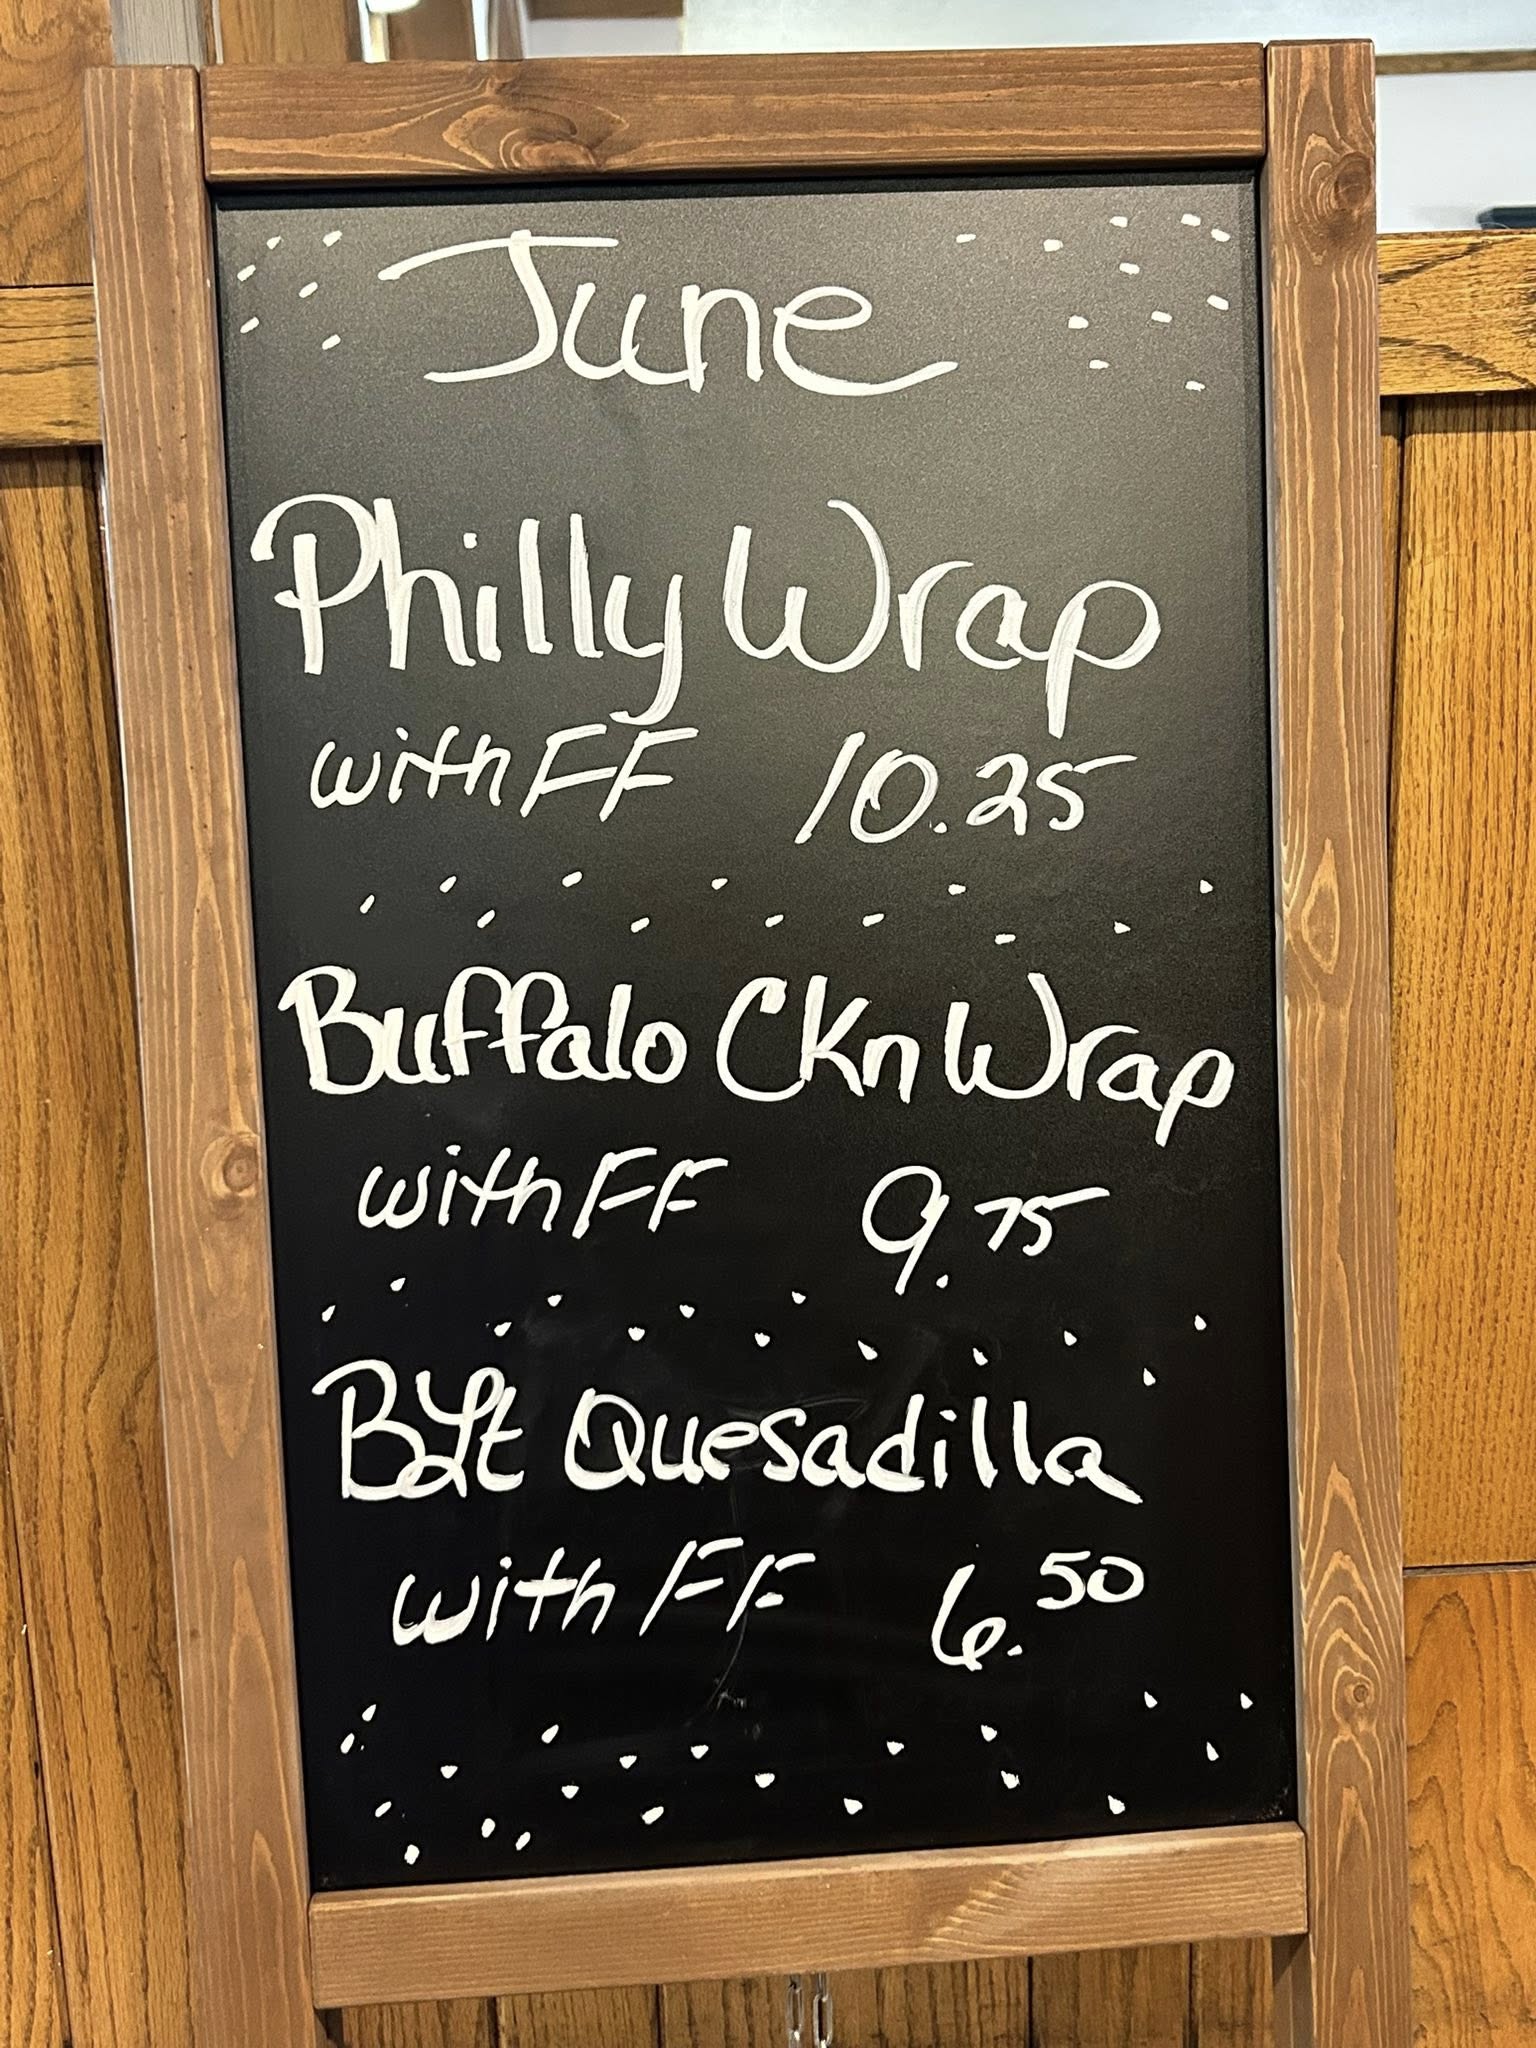 June
Philly Wrap
with FF 10.25
Buffalo Ckn Wrap
with FF 9.75
BLt Quesadilla
with FF 6.50